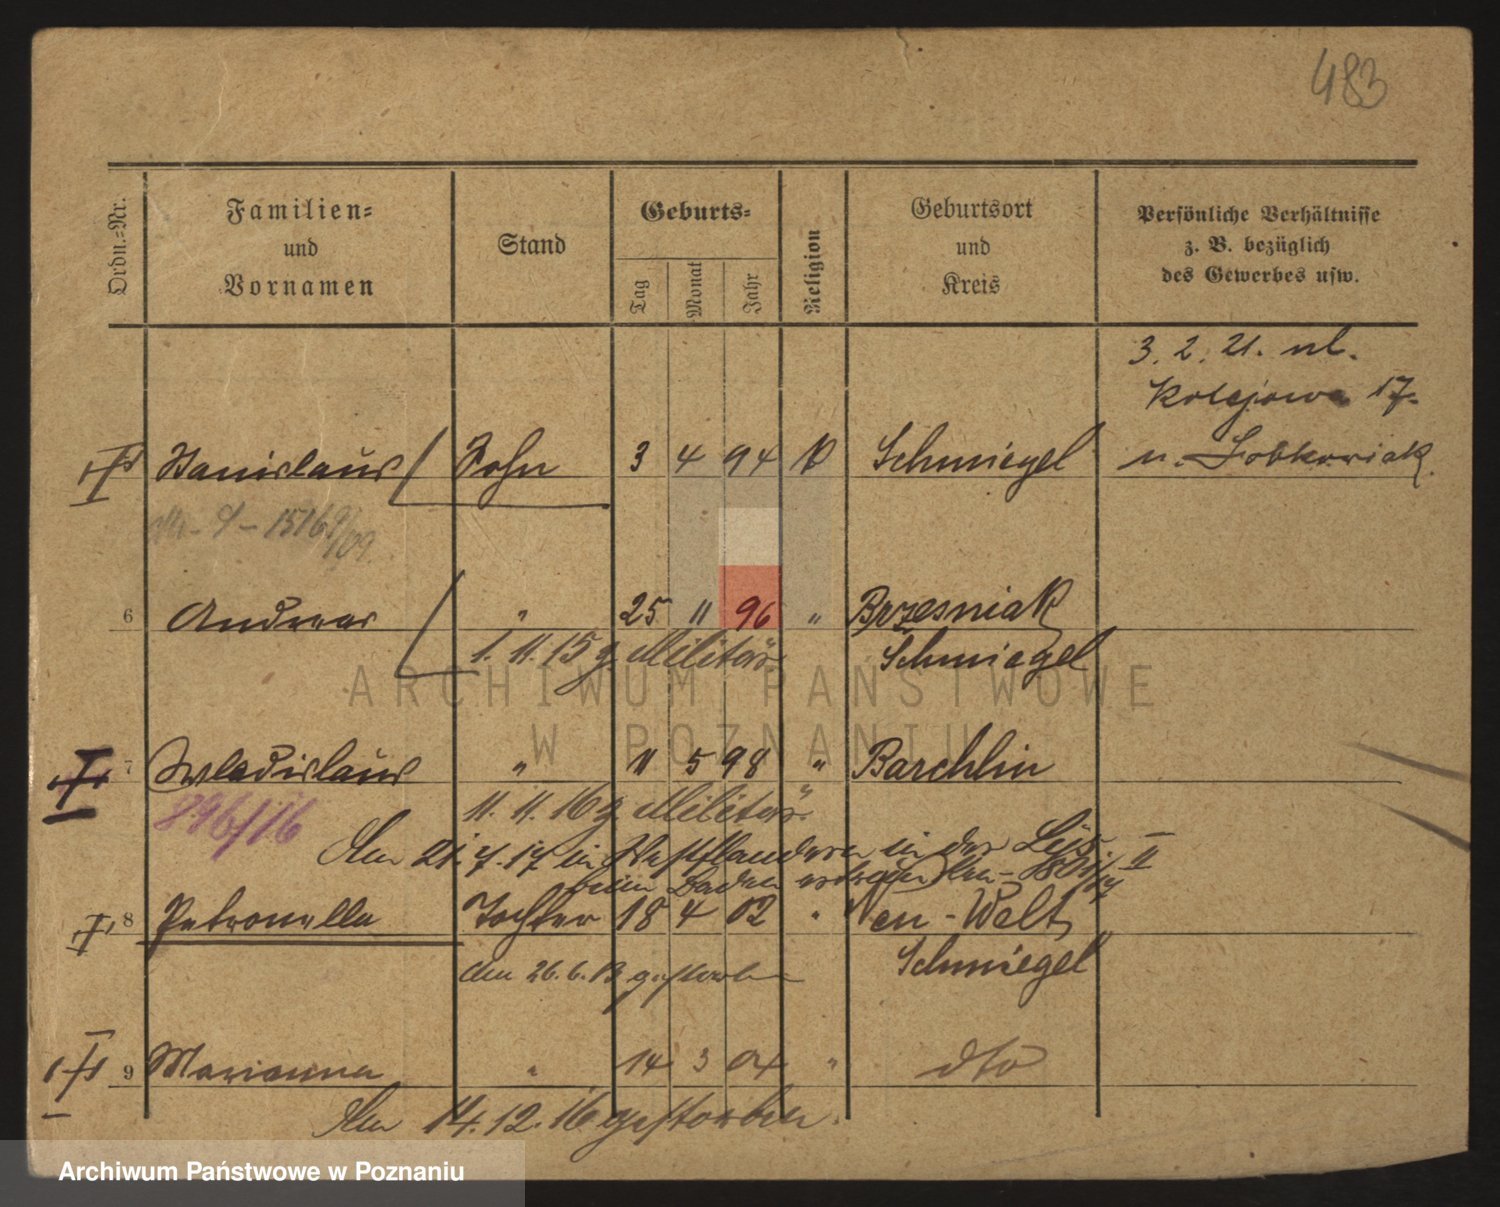 483
Ordn.-Nr.
Familien-
und
Vornamen
Stand
Geburts-
Tag
Monat
Jahr
Religion
Geburtsort
und
Kreis
Persönliche Verhältnisse
z. B. bezüglich
des Gewerbes usw.
3. 2. 21. ul.
Kolejowa 17.
Stanislaus Sohn 3 4 94 K Schmiegel u. Sobkowiak
6 Andreas " 25 11 96 " Brzesniak
1. 11. 15 z. Militär. Schmiegel
ARCHIWUM PAŃSTWOWE
W POZNANIU
7 Wladislaus " 11 5 98 " Barchlin
896/16 11. 11. 16 z. Militär.
Am 21. 7. 17 in Westflandern in der Lys
beim Baden
8 Petronella Tochter 18 4 02 " Neu-Welt
den 26. 6. 13 gestorben Schmiegel
9 Marianna " 14 3 04 " dto
Am 14. 12. 16 gestorben.
Archiwum Państwowe w Poznaniu